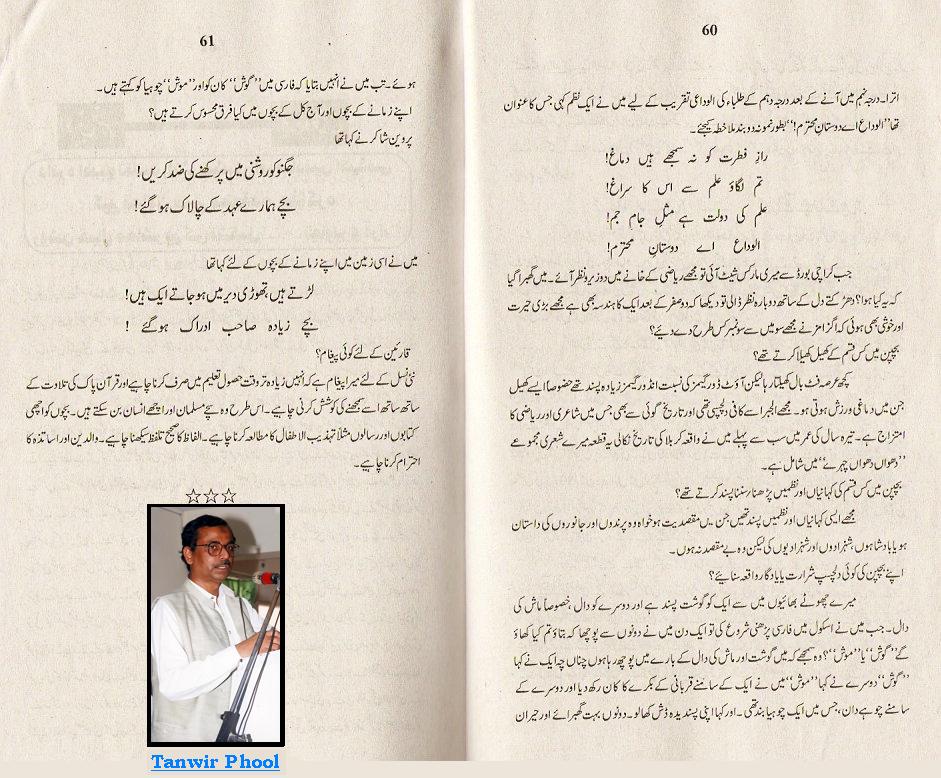 60
اترا۔ درجہ نہم میں آنے کے بعد درجہ دہم کے طلباء کی الوداعی تقریب کے لیے میں نے ایک نظم کہی جس کا عنوان
تھا ’’الوداع اے دوستانِ محترم!‘‘ بطور نمونہ دو بند ملاحظہ کیجئے۔
رازِ فطرت کو نہ سمجھے ہیں دماغ!
تم لگاؤ علم سے اس کا سراغ!
علم کی دولت ہے مثلِ جامِ جم!
الوداع اے دوستانِ محترم!
جب کراچی بورڈ سے میری مارکس شیٹ آئی تو مجھے ریاضی کے خانے میں دو زیرو نظر آئے۔ میں گھبرا گیا
کہ یہ کیا ہوا؟ دھڑکتے دل کے ساتھ دوبارہ نظر ڈالی تو دیکھا کہ دو صفر کے بعد ایک کا ہندسہ بھی ہے مجھے بڑی حیرت
اور خوشی بھی ہوئی کہ اگزامنر نے مجھے سو میں سے سو نمبر کس طرح دے دئیے؟
بچپن میں کس قسم کے کھیل کھیلا کرتے تھے؟
کچھ عرصہ فٹ بال کھیلتا رہا لیکن آؤٹ ڈور گیمز کی نسبت انڈور گیمز زیادہ پسند تھے خصوصاً ایسے کھیل
جن میں دماغی ورزش ہوتی ہو۔ مجھے الجبرا سے کافی دلچسپی تھی اور تاریخ گوئی سے بھی جس میں شاعری اور ریاضی کا
امتزاج ہے۔ تیرہ سال کی عمر میں سب سے پہلے میں نے واقعہ کربلا کی تاریخ نکالی یہ قطعہ میرے شعری مجموعے
’’دھواں دھواں چہرے‘‘ میں شامل ہے۔
بچپن میں کس قسم کی کہانیاں اور نظمیں پڑھنا/سننا پسند کرتے تھے؟
مجھے ایسی کہانیاں اور نظمیں پسند تھیں جن میں مقصدیت ہو خواہ وہ پرندوں اور جانوروں کی داستان
ہو یا بادشاہوں، شہزادوں اور شہزادیوں کی لیکن وہ بے مقصد نہ ہوں۔
اپنے بچپن کی کوئی دلچسپ شرارت یا یادگار واقعہ سنائیے؟
میرے چھوٹے بھائیوں میں سے ایک کو گوشت پسند ہے اور دوسرے کو دال، خصوصاً ماش کی
دال۔ جب میں نے اسکول میں فارسی پڑھنی شروع کی تو ایک دن میں نے دونوں سے پوچھا کہ بتاؤ تم کیا کھاؤ
گے ’’گوش‘‘ یا ’’موش‘‘؟ وہ سمجھے کہ میں گوشت اور ماش کی دال کے بارے میں پوچھ رہا ہوں چناں چہ ایک نے کہا
’’گوش‘‘ دوسرے نے کہا ’’موش‘‘ میں نے ایک کے سامنے قربانی کے بکرے کا کان رکھ دیا اور دوسرے کے
سامنے چوہے دان، جس میں ایک چوہیا بند تھی۔ اور کہا اپنی اپنی پسندیدہ ڈش کھا لو۔ دونوں بہت گھبرائے اور حیران
61
ہوئے۔ تب میں نے انہیں بتایا کہ فارسی میں ’’گوش‘‘ کان کو اور ’’موش‘‘ چوہیا کو کہتے ہیں۔
اپنے زمانے کے بچوں اور آج کل کے بچوں میں کیا فرق محسوس کرتے ہیں؟
پروین شاکر نے کہا تھا
جگنو کو روشنی میں پرکھنے کی ضد کریں!
بچے ہمارے عہد کے چالاک ہو گئے!
میں نے اسی زمین میں اپنے زمانے کے بچوں کے لئے کہا تھا
لڑتے ہیں، تھوڑی دیر میں ہو جاتے ایک ہیں!
بچے زیادہ صاحب ادراک ہو گئے !
قارئین کے لئے کوئی پیغام؟
نئی نسل کے لئے میرا پیغام ہے کہ انہیں زیادہ تر وقت حصول تعلیم میں صرف کرنا چاہیے اور قرآن پاک کی تلاوت کے
ساتھ ساتھ اسے سمجھنے کی کوشش کرنی چاہیے۔ اس طرح وہ سچے مسلمان اور اچھے انسان بن سکتے ہیں۔ بچوں کو اچھی
کتابوں اور رسالوں مثلاً تہذیب الاطفال کا مطالعہ کرنا چاہیے۔ الفاظ کا صحیح تلفظ سیکھنا چاہیے۔ والدین اور اساتذہ کا
احترام کرنا چاہیے۔
☆☆☆
Tanwir Phool